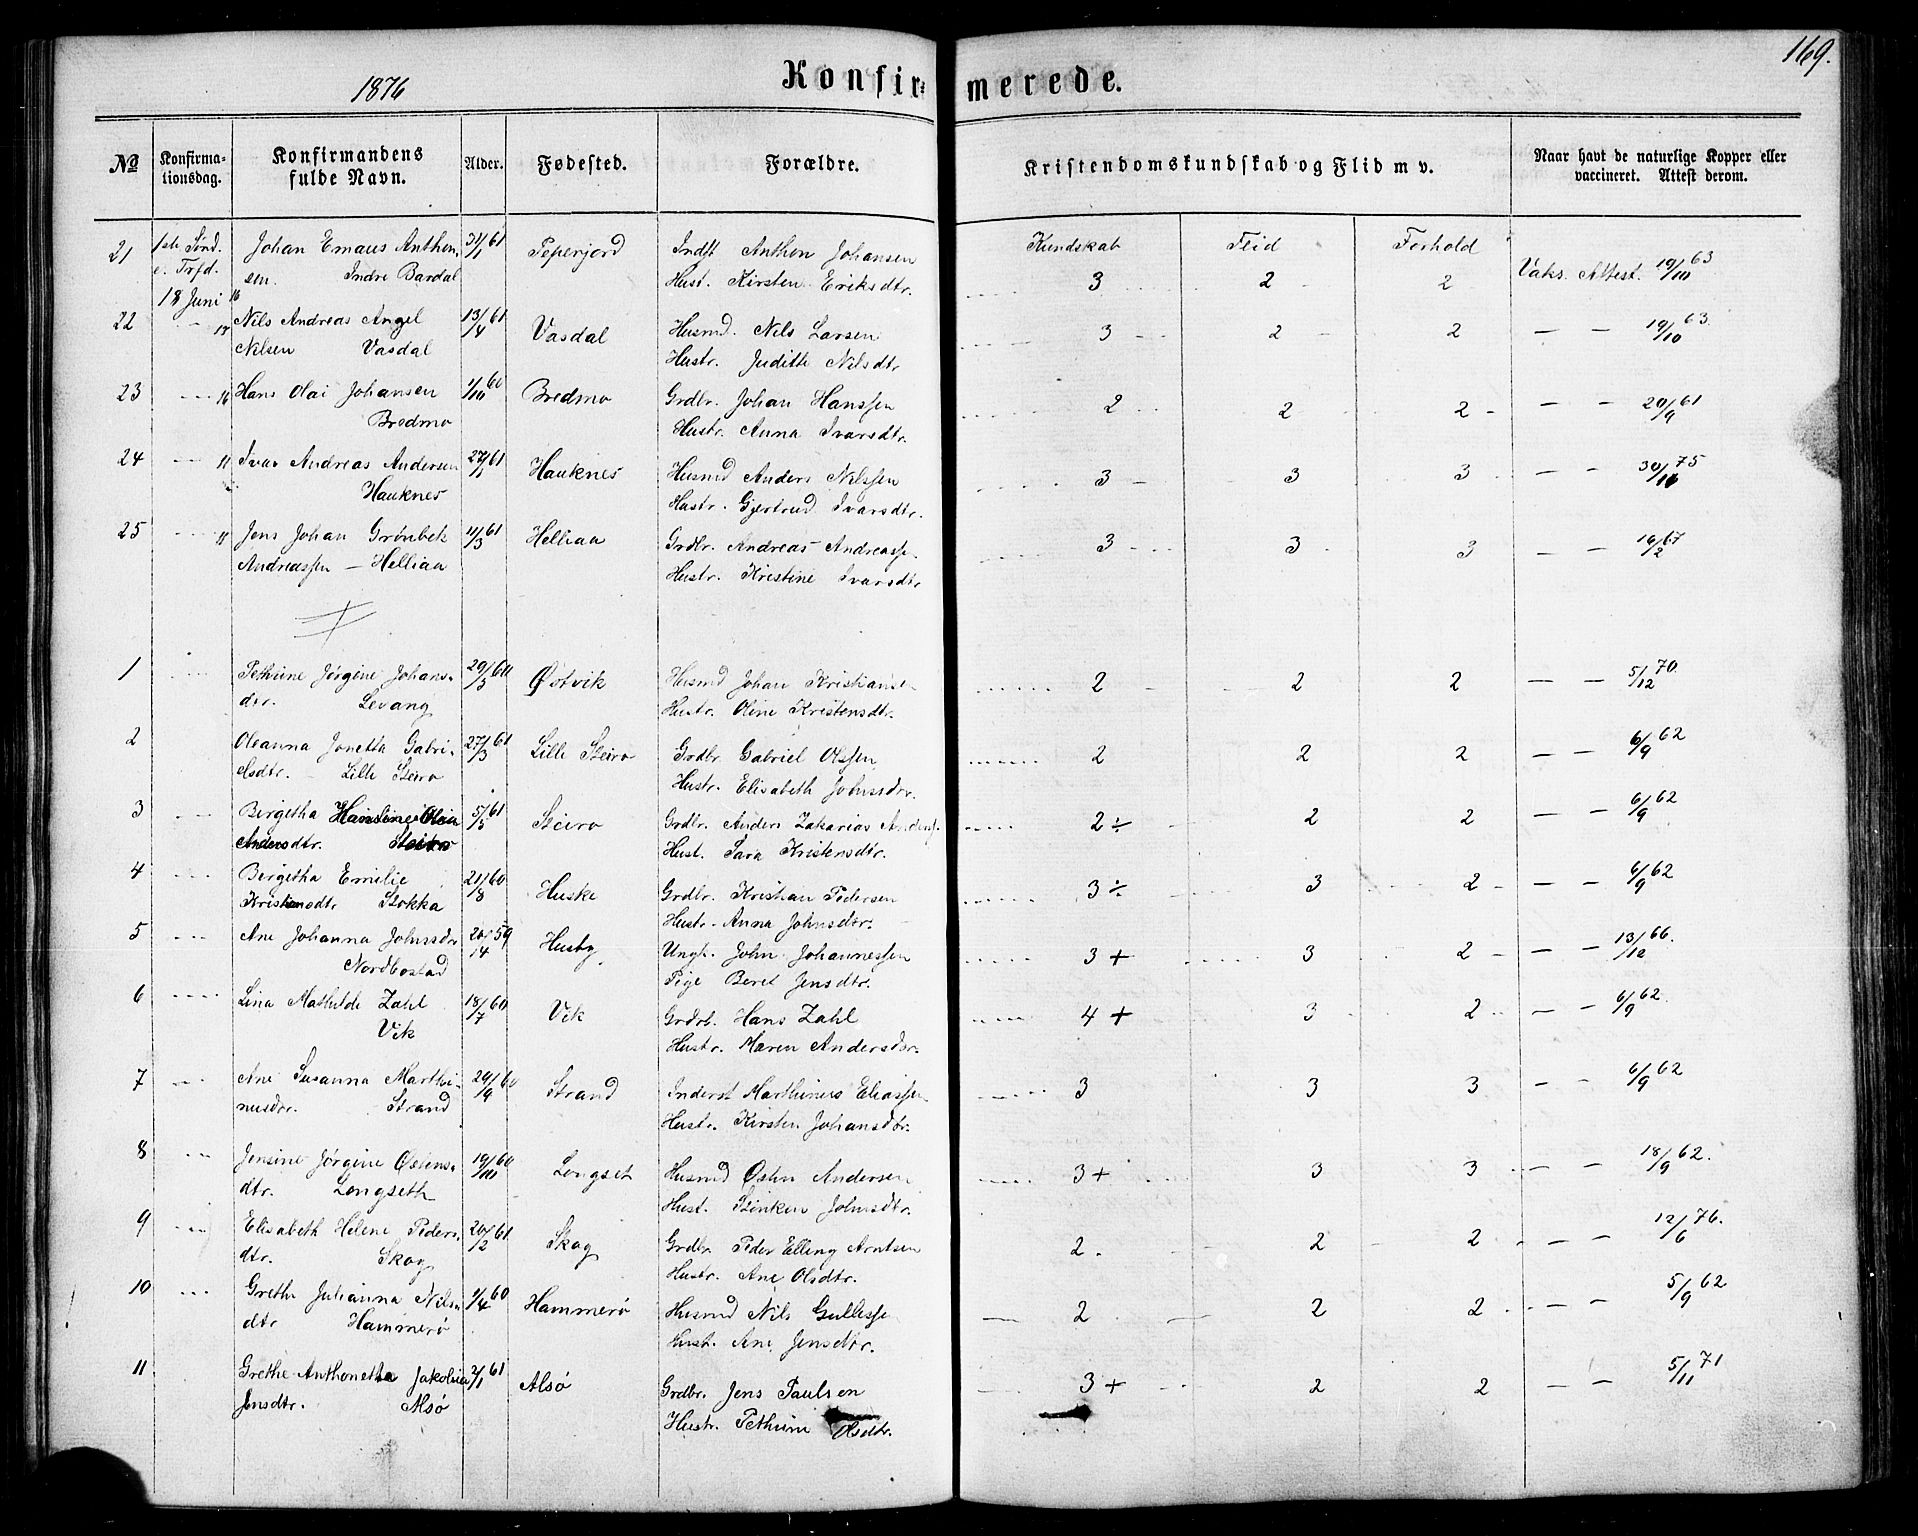 169.
1876
Konfir-
merede.
No
Konfirma-
tionsdag.
Konfirmandens
fulde Navn.
Alder.
Fødested.
Forældre.
Kristendomskundskab og Flid m v.
Naar havt de naturlige Kopper eller
vaccineret. Attest derom.
Kundskab Flid Forhold
21 1ste Sønd. Johan Emaus Anthon- 31/1 61 Peperjord Indst Anthon Johansen
e. Trfd. sen. Indre Bardal Hust. Kirsten Eriksdtr. 3 2 2 Vaks. Attest. 19/10 63
18 Juni
22 Nils Andreas Angel 13/4 61 Vasdal Husmd. Nils Larsen 3 2 2 — — 19/10 63.
Nilsen Vasdal Hustr. Judithe Nilsdtr
23 Hans Olai Johansen 1/10 60 Bredmo Grdbr. Johan Hanssen 2 2 2 — — 20/9 61
Bredmo Hustr. Anna Ivarsdtr.
24 Ivar Andreas Andersen 27/1 61 Hauknes Husmd Anders Nilssen 3 3 3 — — 75
Hauknes Hustr. Gjertrud Ivarsdtr.
25 Jens Johan Grønbek 11/3 61 Helliaa Grdbr. Andreas Andreass. 3 3 3 — — 67
Andreassen — Helliaa Hustr. Kristine Ivarsdtr
1 Pethrine Jørgine Johans- 29/3 60 Østvik Husmd Johan Kristiansen 2 2 2 — — 5/12 70.
dtr. Levang Hustr. Oline Kristensdtr.
2 Oleanna Jonetta Gabri- 27/3 61 Lille Steiro Grdbr Gabriel Olssen 2 2 2 — — 6/9 62
elsdtr. Lille Steiro Hustr. Elisabeth Johnsdtr.
3 Birgitha Hansine Olea 5/3 61 Steiro Grdbr. Anders Zakarias Anders. 2÷ 2 2 — — 6/9 62
Andersdtr. Steiro Hust. Sara Kristensdtr.
4 Birgitha Emilie 21/8 60 Huske Grdbr. Kristian Pedersen 3÷ 3 2 — — 6/9 62
Kristiansdtr Stokka Hustr. Anna Johnsdtr.
5 Ane Johanna Johnsdtr 59 Husby Ungk. John Johannessen 3+ 3 2 — — 13/12 66.
Nordbostad Pige Beret Jensdtr.
6 Lina Mathilde Zahl 18/7 60 Vik Grdrb. Hans Zahl 4+ 3 2 — — 6/9 62.
Vik Hustr. Maren Andersdtr.
7 Ane Susanna Marthi- 24/9 60 Strand Inderst Marthinus Eliassen 3 3 3 — — 6/9 62
nusdtr. Strand Hustr. Kirsten Johansdtr.
8 Jensine Jørgine Østens- 19/10 60 Longset Husmd Østen Andersen 3+ 3 3 — — 18/9 62.
dtr. Longseth Hust. Stinken Johnsdtr.
9 Elisabeth Helene Peders- 20/2 61 Skog Grdbr Peder Elling Arntsen 2 2 2 — — 12/6 76.
dtr. Skog Hustr. Ane Olsdtr.
10 Grethe Julianna Nils- 1/4 60 Hammerø Husmd Nils Gullesse 2 2 2 — — 5/9 62
dtr Hammerø Hust. Ane Jensdtr.
11 Grethe Anthonetta Jakobia 2/1 61 Alsø Grdbr. Jens Paulsen 3+ 2 2 — — 5/11 71
Jensdtr. Alsø Hustr. Pethrine Olsdtr.